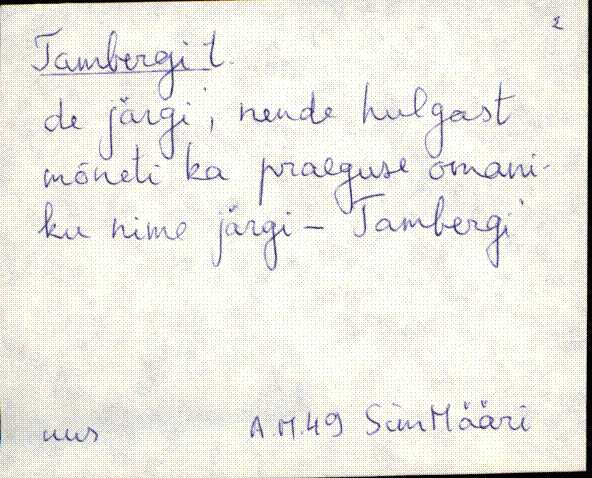 2
Tambergi t.
de järgi, nende hulgast
mõneti ka praeguse omani-
ku nime järgi - Tambergi
uus A.M.49 SimMääri